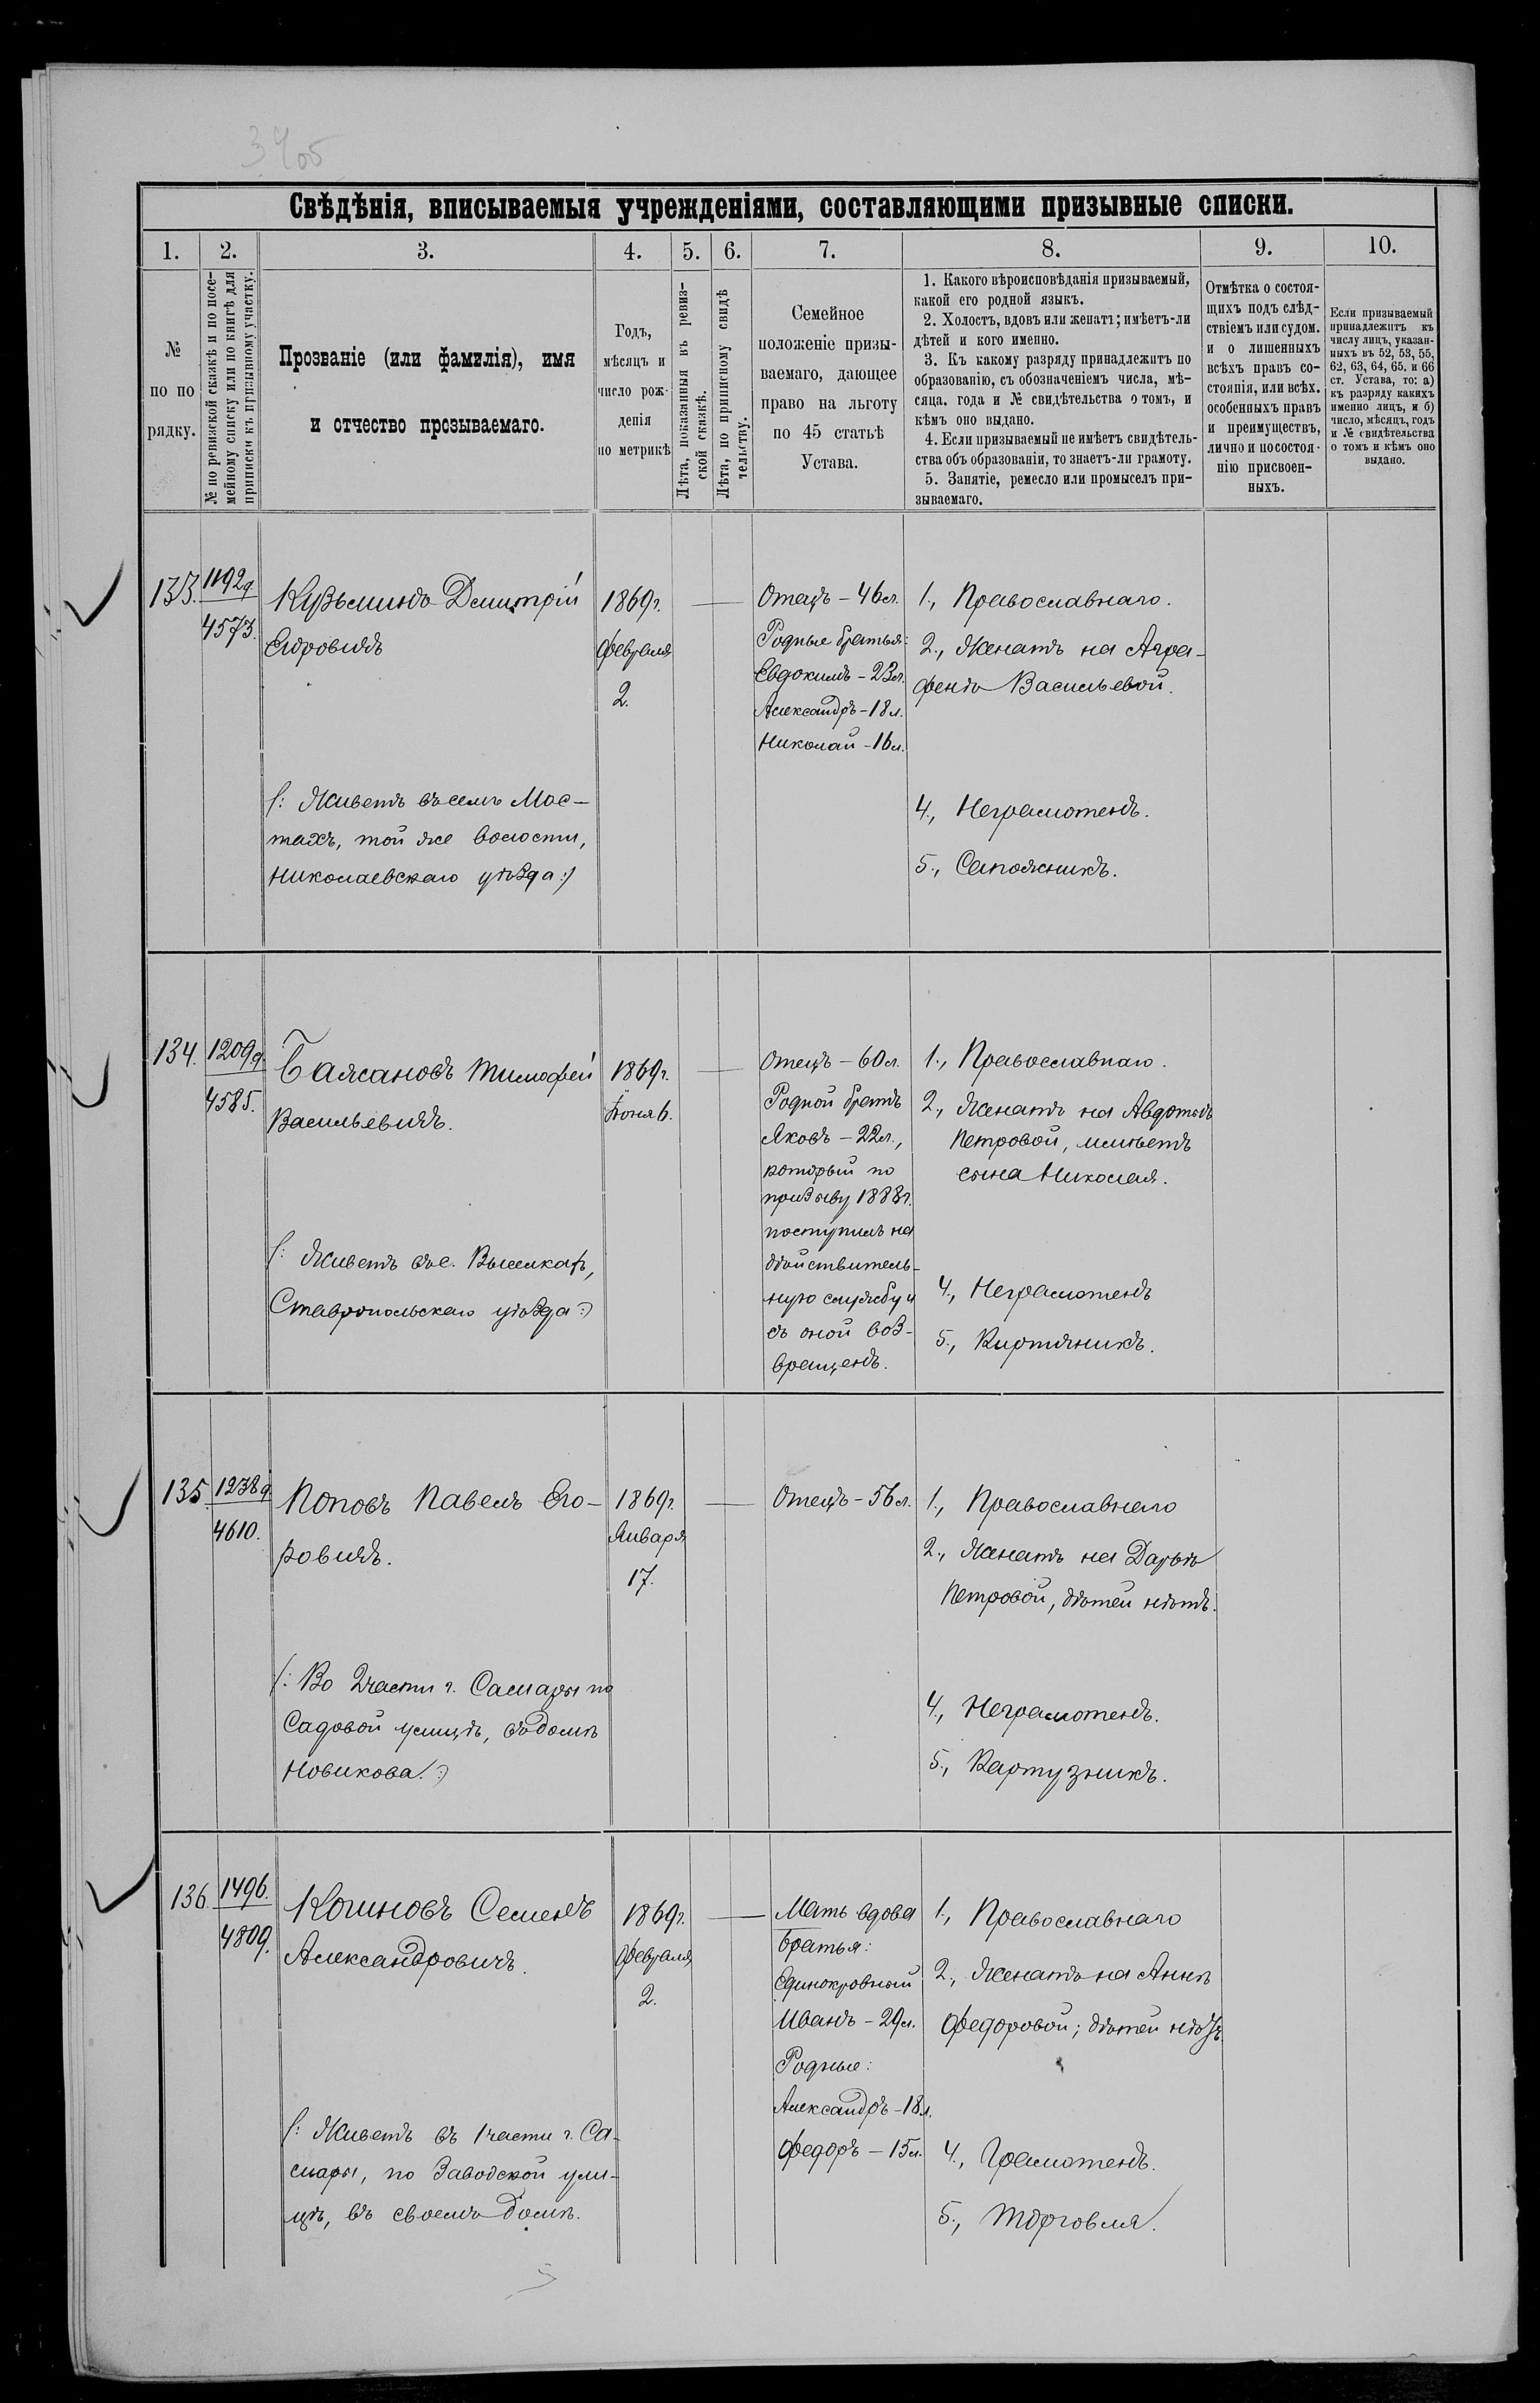 Свѣдѣнія, вписываемыя учрежденіями, составляющими призывные списки.
1.
2.
3.
4.
5.
6.
7.
8.
9.
10.
№
по по
рядку.
№ по ревизской сказкѣ и по посе-
мейному списку или по книгѣ для
приписки къ призывному участку.
Прозваніе (или фамилія), имя
и отчество прозываемаго.
Годъ,
мѣсяцъ и
число рож-
денія
по метрикѣ
Лѣта, показанныя въ ревиз-
ской сказкѣ.
Лѣта, по приписному свидѣ
тельству.
Семейное
положеніе призы-
ваемаго, дающее
право на льготу
по 45 статьѣ
Устава.
1. Какого вѣроисповѣданія призываемый,
какой его родной языкъ.
2. Холостъ, вдовъ или женатъ; имѣетъ-ли
дѣтей и кого именно.
3. Къ какому разряду принадлежитъ по
образованію, съ обозначеніемъ числа, мѣ-
сяца. года и № свидѣтельства о томъ, и
кѣмъ оно выдано.
4. Если призываемый не имѣетъ свидѣтель-
ства объ образованіи, то знаетъ-ли грамоту.
5. Занятіе, ремесло или промыселъ при-
зываемаго.
Отмѣтка о состоя-
щихъ подъ слѣд-
ствіемъ или судом.
и о лишенныхъ
всѣхъ правъ со-
стоянія, или всѣх.
особенныхъ правъ
и преимуществъ,
лично и по состоя-
нію присвоен-
ныхъ.
Если призываемый
принадлежитъ къ
числу лицъ, указан-
ныхъ въ 52, 53, 55,
62, 63, 64, 65. и 66
ст. Устава, то: а)
къ разряду какихъ
именно лицъ, и б)
число, мѣсяцъ, годъ
и № свидѣтельства
о томъ и кѣмъ оно
выдано.
133.
1192д.
4573.
Кузьминъ Дмитрій
Егоровичъ
(: Живетъ въ селѣ Мос-
тахъ, той же волости,
Николаевскаго уѣзда :)
1869г.
Февраля
2.
Отецъ – 46л.
Родные братья:
Евдокимъ – 22л.
Александръ – 18л.
Николай – 16л.
1., Православнаго.
2., Женатъ на Агра-
фенѣ Васильевой.
4., Неграмотенъ.
5., Сапожникъ.
134.
1209д.
4585.
Бажановъ Тимофей
Васильевичъ.
(: Живетъ въ с. Выселкахъ,
Ставропольскаго уѣзда :)
1869г.
Іюня 6.
Отецъ – 60л.
Родной братъ
Яковъ – 22л.,
который по
призыву 1888г.
поступилъ на
дѣйствитель-
ную службу и
съ оной воз-
вращенъ.
1., Православнаго.
2., Женатъ на Авдотьѣ
Петровой, имѣетъ
сына Николая.
4., Неграмотенъ
5., Кирпичникъ.
135
1238д.
4610.
Поповъ Павелъ Его-
ровичъ.
(: Во 2 части г. Самары по
Садовой улицѣ, въ домѣ
Новикова. :)
1869г.
Января
17.
Отецъ – 56л.
1., Православнаго
2., Женатъ на Дарьѣ
Петровой, дѣтей нѣтъ.
4., Неграмотенъ.
5., Картузникъ.
136.
1496.
4809.
Семенъ
Александровичъ.
(: Живетъ въ 1 части г. Са-
мары, по Заводской ули-
цѣ, въ своемъ домѣ.
1869г.
Февраля
2.
Мать вдова
Братья:
Единокровный
Иванъ – 29л.
Родные:
Александръ – 18л.
Федоръ – 15л.
1., Православнаго
2., Женатъ на Аннѣ
Федоровой; дѣтей нѣтъ
4., Грамотенъ.
5., Торговля.